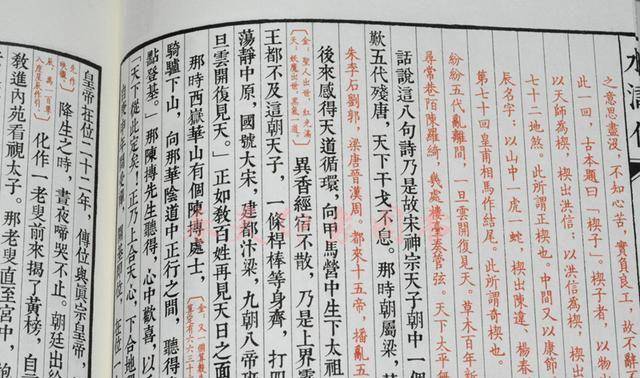 水滸傳
之意思盡沒,不知心苦,實負良工,故不辭
此一回,古本題曰「楔子」。楔子者,以物
以天師為楔,楔出洪信;以洪信為楔,
七十二地煞。此所謂正楔也。中間又以康節
辰名字;以山中一虎一蛇,楔出陳達、楊春
第七十回皇甫相馬作結尾。此所謂奇楔也。
紛紛五代亂離間,一旦雲開復見天。草木百年
尋常巷陌陳羅綺,幾處樓臺奏管弦。天下太平
話說這八句詩乃是故宋神宗天子朝中一個
歎五代殘唐,天下干戈不息。那時朝屬梁,
朱李石劉郭,梁唐晉漢周。都來十五帝,播亂五
後來感得天道循環,向甲馬營中生下太祖
金。聖人出世,紅光滿
天;妖魔出世,黑氣一道。
異香經宿不散,乃是上界
王都不及這朝天子,一條桿棒等身齊,打四
蕩靜中原,國號大宋,建都汴梁,九朝八帝班
旦雲開復見天。」正如教百姓再見天日之面
那時西嶽華山有個陳摶處士,
騎驢下山,向那華陰道中正行之間,聽得
點登基。」那陳摶先生聽得,心中歡喜,以
「天下從此定矣!」正乃上合天心,下合地
皇帝在位二十二年,傳位與真宗皇帝
降生之時,晝夜啼哭不止。朝廷出給
化作一老叟,前來揭了黃榜,自
教進內苑看視太子。那老叟直至宮中,抱